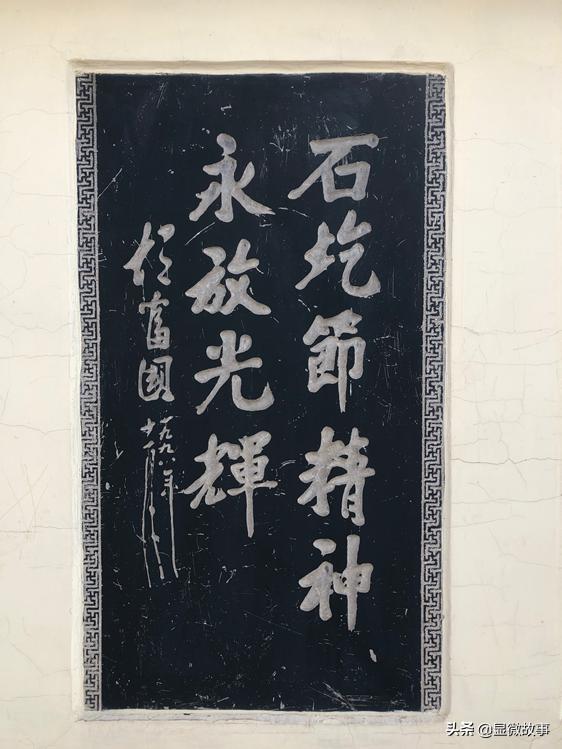 石圪節精神
永放光輝
富國
一九九八年
头条 @显微故事